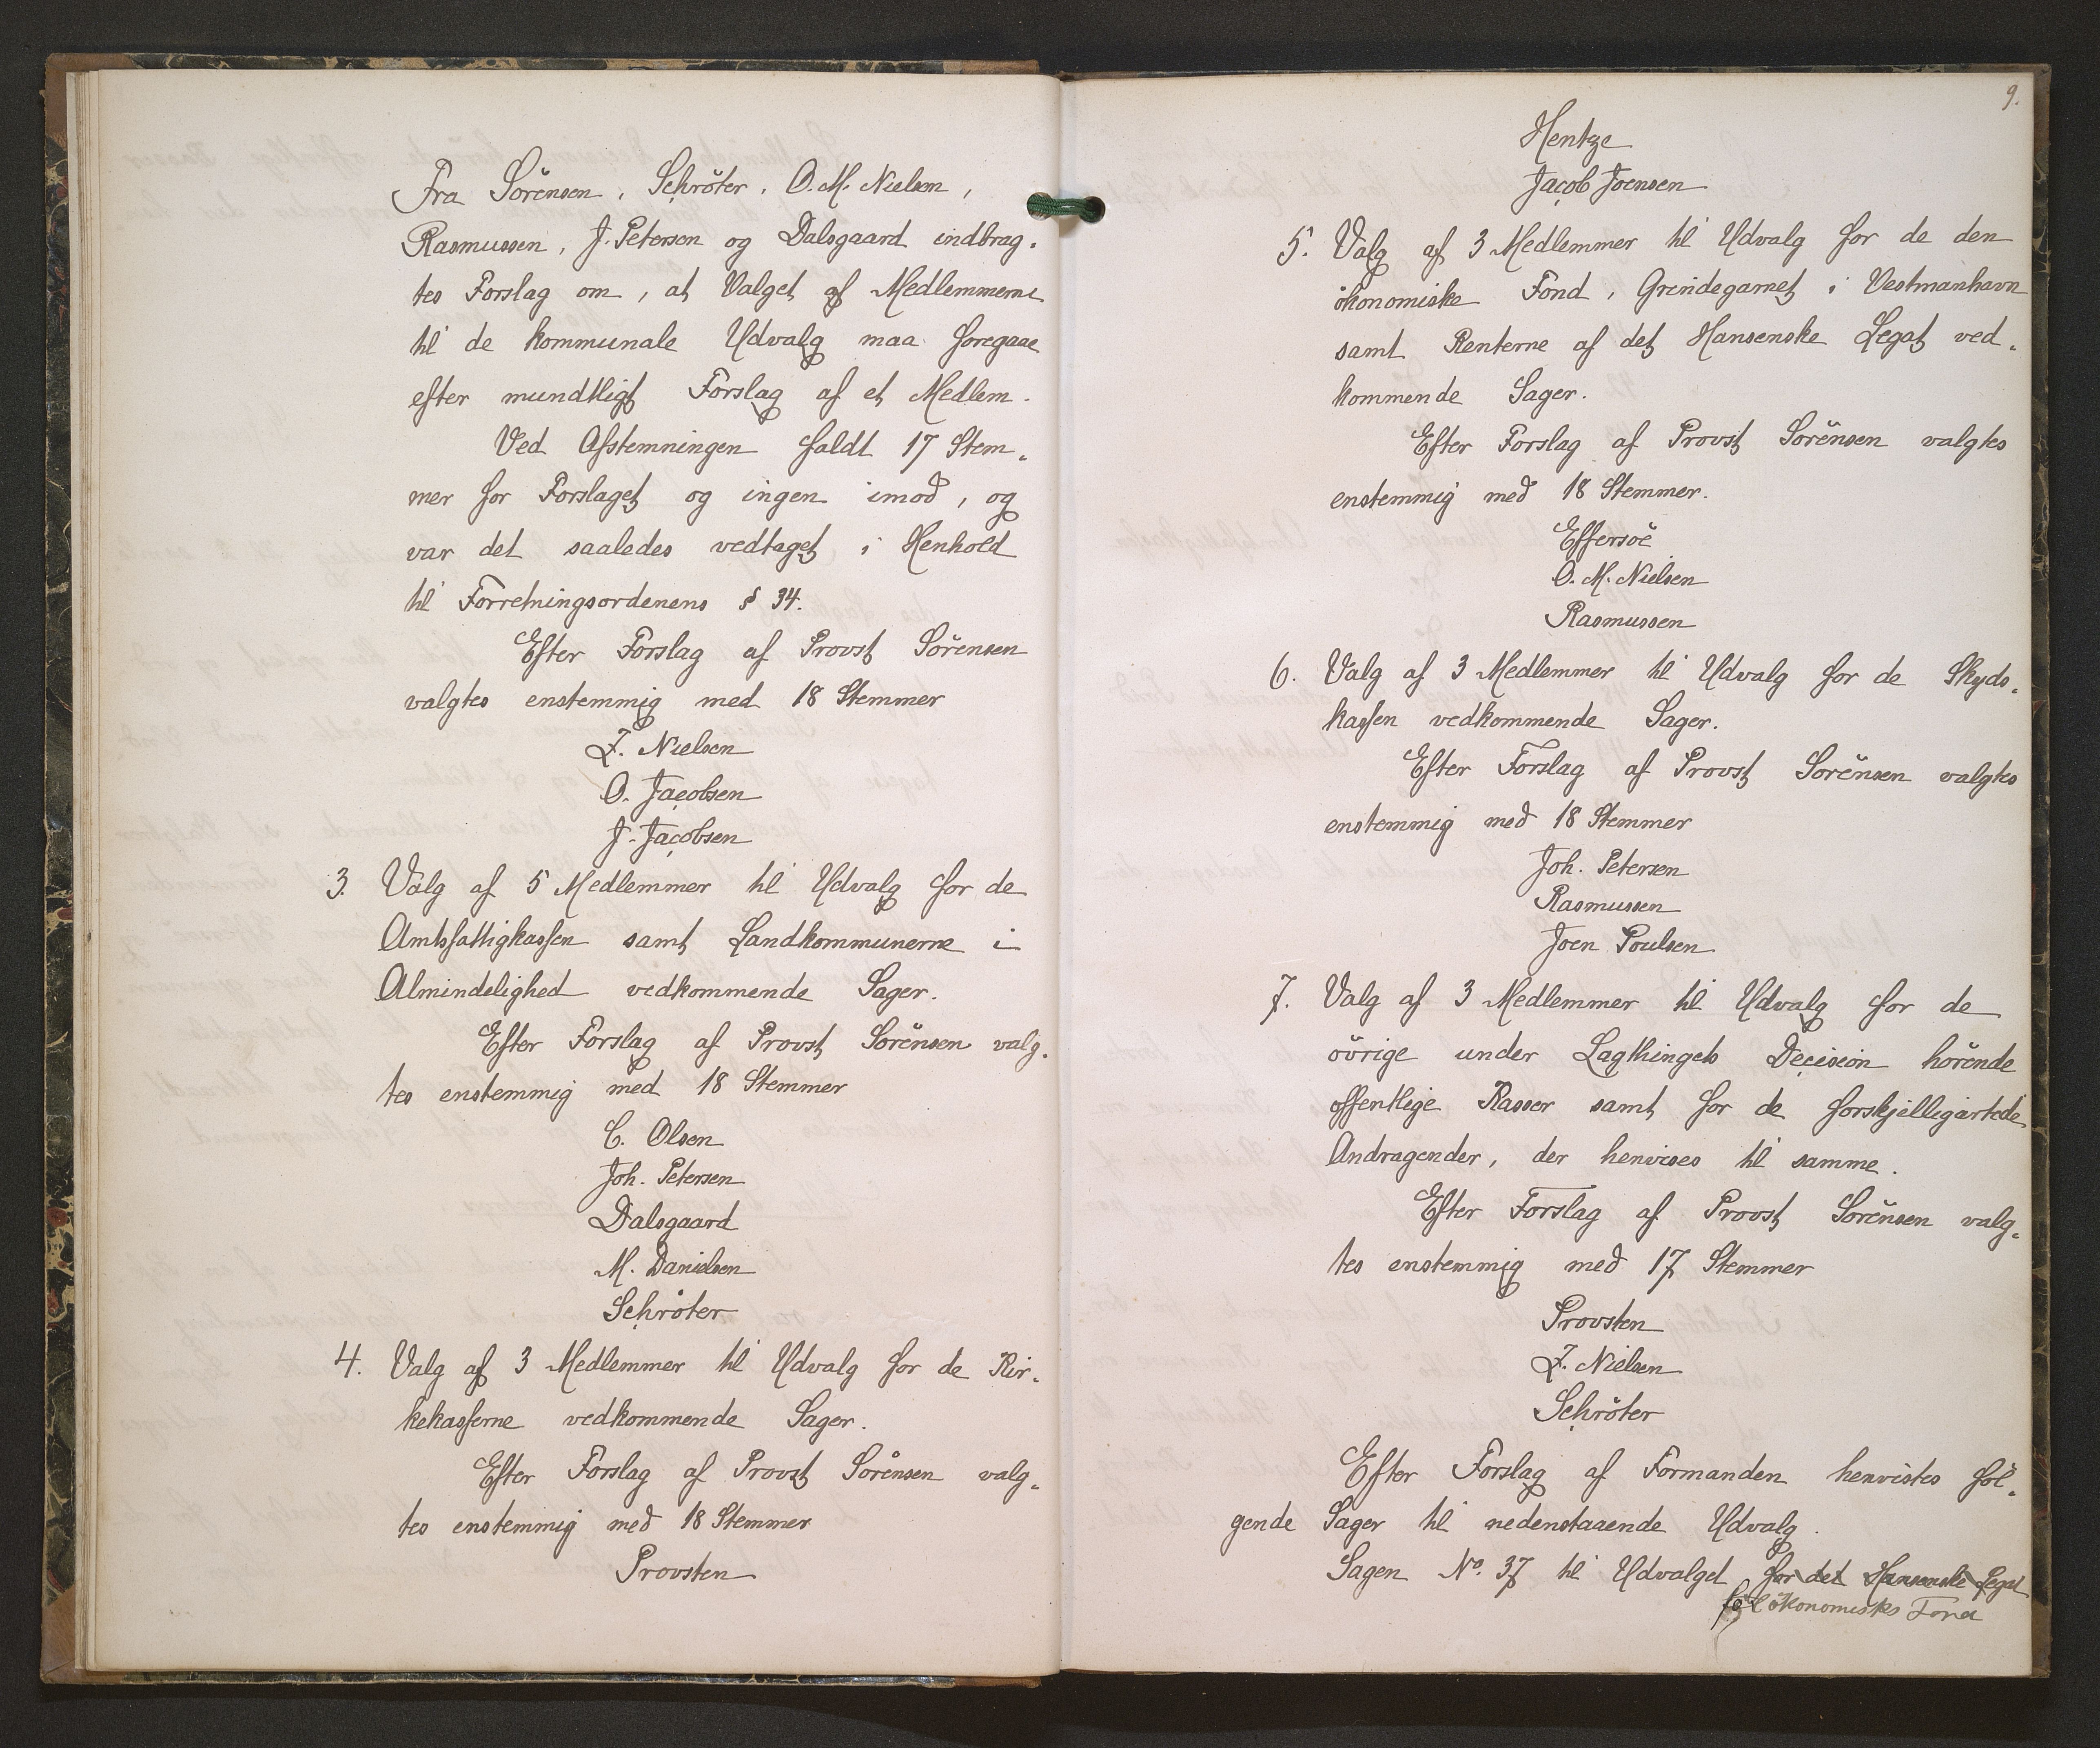 Fra Sörensen, Schröter, O. M. Nielsen,
Rasmussen, J. Petersen og Dalsgaard indbrag-
tes Forslag om, at Valget af Medlemmerne
til de kommunale Udvalg maa foregaae
efter mundtligt Forslag af et Medlem.
Ved Afstemningen faldt 17 Stem-
mer for Forslaget og ingen imod, og
var det saaledes vedtaget i Henhold
til Forretningsordenens § 34.
Efter Forslag af Provst Sörensen
valgtes enstemmig med 18 Stemmer
Z. Nielsen
O. Jacobsen
J. Jacobsen
3. Valg af 5 Medlemmer til Udvalg for de
Amtsfattigkassen samt Landkommunerne i
Almindelighed vedkommende Sager.
Efter Forslag af Provst Sörensen valg-
tes enstemmig med 18 Stemmer
C. Olsen
Joh. Petersen
Dalsgaard
M. Danielsen
Schröter
4. Valg af 3 Medlemmer til Udvalg for de Kir-
kekasserne vedkommende Sager.
Efter Forslag af Provst Sörensen valg-
tes enstemmig med 18 Stemmer
Provsten
9.
Hentze
Jacob Joensen
5. Valg af 3 Medlemmer til Udvalg for de den
ökonomiske Fond, Grindegarnet i Vestmanhavn
samt Renterne af det Hansenske Legat ved-
kommende Sager.
Efter Forslag af Provst Sörensen valgtes
enstemmig med 18 Stemmer.
Effersöe
O. M. Nielsen
Rasmussen
6. Valg af 3 Medlemmer til Udvalg for de Skyds-
kassen vedkommende Sager.
Efter Forslag af Provst Sörensen valgtes
enstemmig med 18 Stemmer
Joh. Petersen
Rasmussen
Joen Poulsen
7. Valg af 3 Medlemmer til Udvalg for de
övrige under Lagthingets Decision hörende
offentlige Kasser samt for de forskjelligartede
Andragender, der henvises til samme.
Efter Forslag af Provst Sörensen valg-
tes enstemmig med 17 Stemmer
Provsten
Z. Nielsen
Schröter
Efter Forslag af Formanden henvistes föl-
gende Sager til nedenstaaende Udvalg.
Sagen No. 37 til Udvalget for det Hansenske Legat
ökonomiske Fond